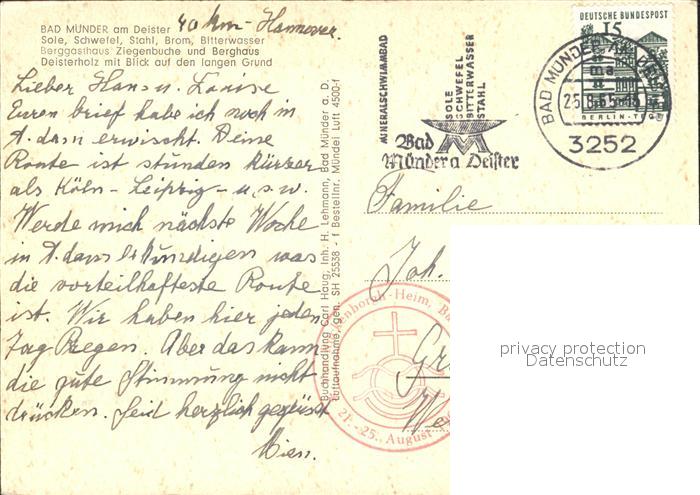 BAD MÜNDER am Deister
40 km - Hannover.
Sole, Schwefel, Stahl, Brom, Bitterwasser
Berggasthaus Ziegenbuche und Berghaus
Deisterholz mit Blick auf den langen Grund
Lieber Hans u. Louise
Euren brief habe ich noch in
A.dam erwischt. Deine
Route ist stunden kürzer
als Köln - Leipzig - u.s.w.
Werde mich nächste Woche
in A.dam erkundigen was
die vorteilhafteste Route
ist. Wir haben hier jeden
Tag Regen. Aber das kann
die gute Stimmung nicht
drücken. Seid herzlich gegrüsst
Mien.
Buchhandlung Carl Haug, Inh. H. Lehmann, Bad Münder a. D.
Luftaufnahme, gen. SH 25538 - f Bestellnr. Mündel Luft 4500-f
MINERALSCHWIMMBAD
SOLE
SCHWEFEL
BITTERWASSER
STAHL
Bad
Münder a Deister
DEUTSCHE BUNDESPOST
15
BERLIN-TEGEL
BAD MÜNDER AM DEISTER
ma
25.8.65-18
3252
Familie
Joh.
21.-25. August
privacy protection
Datenschutz